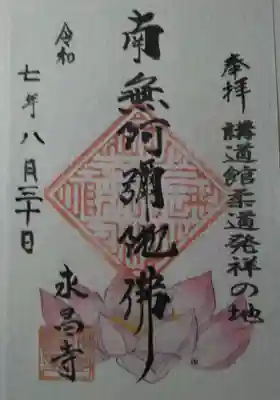 奉拝
講道館柔道発祥の地
南無阿彌陀佛
永昌寺
令和
七年八月三十日